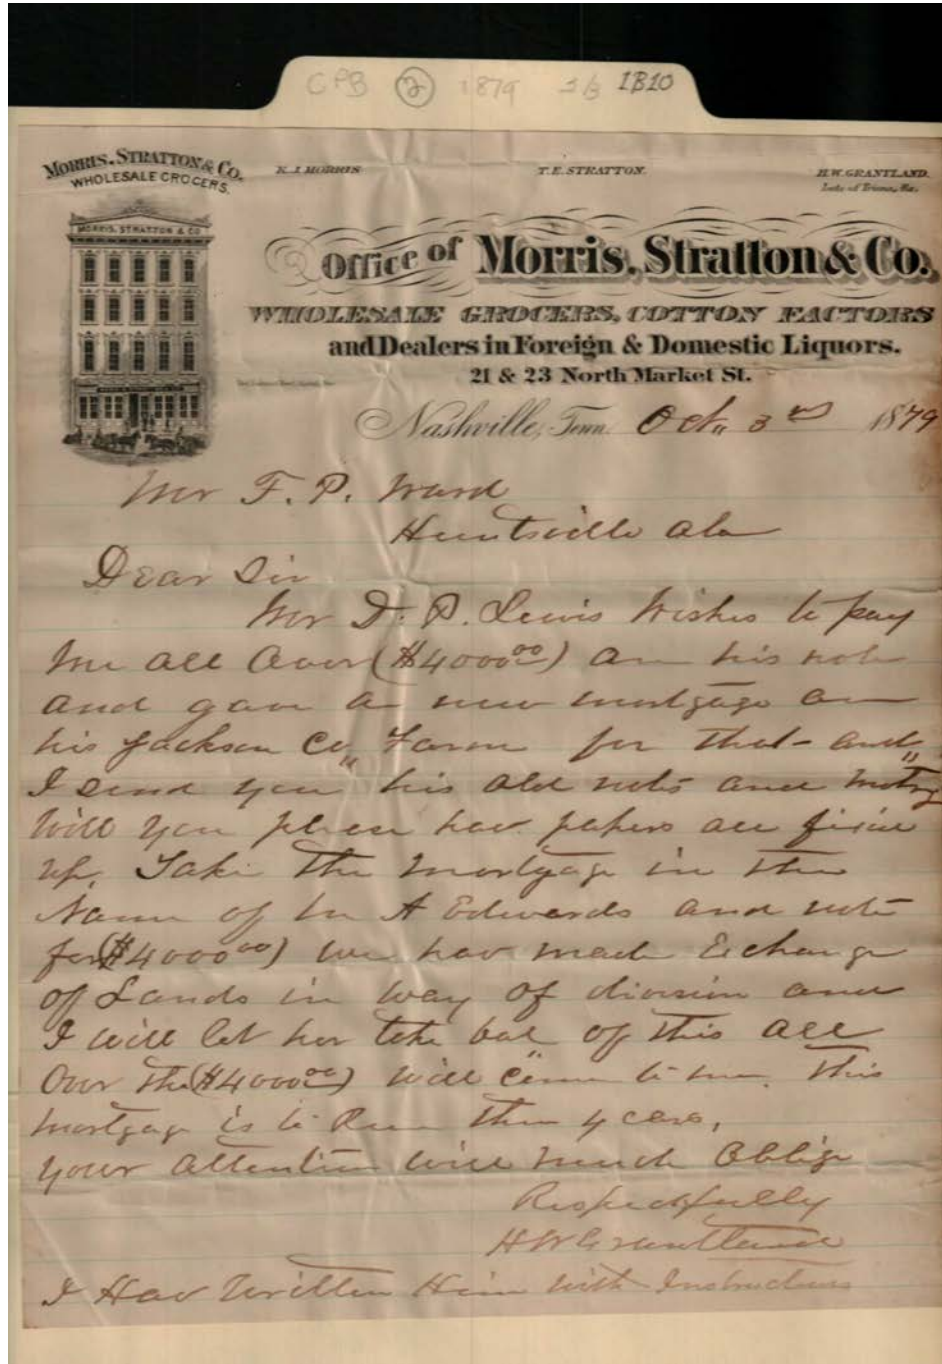 CPB 2 1879 1B10
MORRIS, STRATTON & CO.
WHOLESALE GROCERS.
K. J. MORRIS
T. E. STRATTON.
H. W. GRANTLAND.
Late of Triana, Ala.
MORRIS, STRATTON & CO
Office of Morris, Stratton & Co.
WHOLESALE GROCERS, COTTON FACTORS
and Dealers in Foreign & Domestic Liquors.
21 & 23 North Market St.
Nashville, Tenn. Oct,, 3rd 1879
Mr F. P. Ward
Huntsville Ala
Dear Sir
Mr D. P. Lewis Wishes to pay
me all Over ($4000 00) on his note
and gave a new mortgage on
his Jackson Co,, Farm for that - and
I send you his old note and
Will you please hav papers all
up. Take the mortgage in the
Name of A Edwards and note
for ($4000 00) we hav made Exchange
of Lands in way of division and
I will let her take bal of this all
Over the ($4000 00) will Come to me. This
mortgage is to Run three years,
your attention will much Oblige
Respectfully
H W Grantland
I Hav Written Him with Instructions